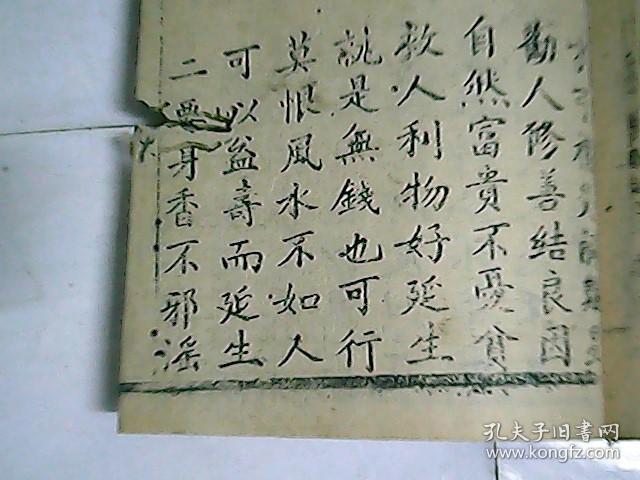 勸人修善結良因
自然富貴不憂貧
救人利物好延生
就是無錢也可行
莫恨風水不如人
可以益壽而延生
二要身香不邪淫
孔夫子旧书网
www.kongfz.com